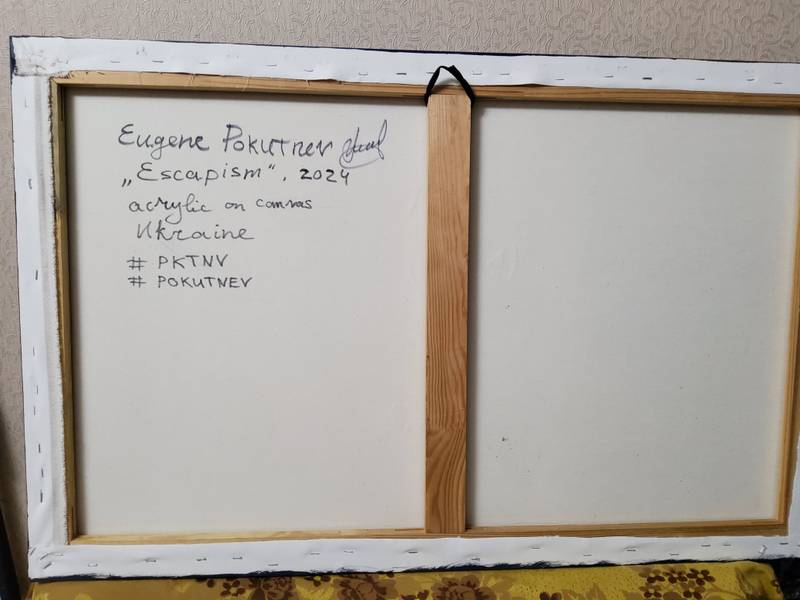 Eugene Pokutnev
„Escapism“, 2024
acrylic on canvas
Ukraine
# PKTNV
# POKUTNEV